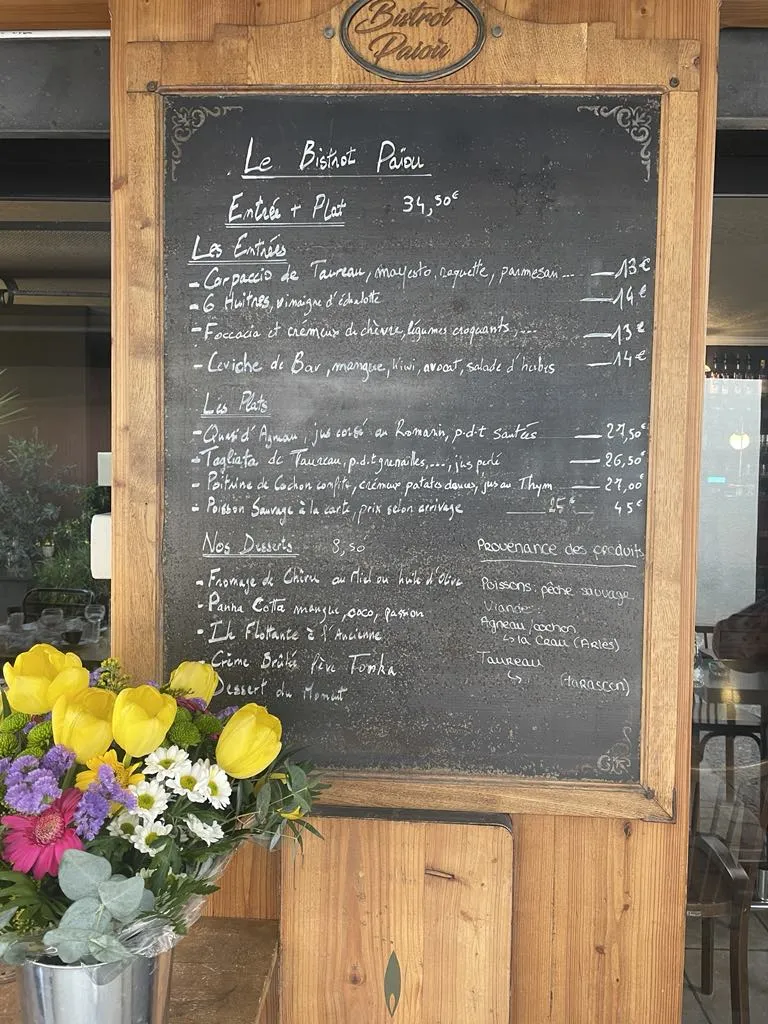 Bistrot
Païou
Le Bistrot Païou
Entrée + Plat 34,50€
Les Entrées
- Carpaccio de Taureau, mayesto, roquette, parmesan... — 13€
- 6 Huitres, vinaigre d'échalotte — 14€
- Foccacia et crémeux de chèvre, légumes croquants,... — 13€
- Ceviche de Bar, mangue, kiwi, avocat, salade d'herbes — 14€
Les Plats
- Quasi d'Agneau, jus corsé au Romarin, p.d.t sautées — 27,50€
- Tagliata de Taureau, p.d.t grenailles,..., jus perlé — 26,50€
- Poitrine de Cochon confite, crémeux patates douces, jus au Thym — 27,00€
- Poisson Sauvage à la carte, prix selon arrivage — 25€ — 45€
Nos Desserts 8,50
- Fromage de Chèvre au Miel ou huile d'Olive
- Panna Cotta mangue, coco, passion
- Ile Flottante à l'Ancienne
- Crème Brûlée fève Tonka
- Dessert du Moment
Provenance des produits
Poissons: pêche sauvage
Viande:
Agneau/cochon
↳ la Crau (Arles)
Taureau
↳ (Tarascon)